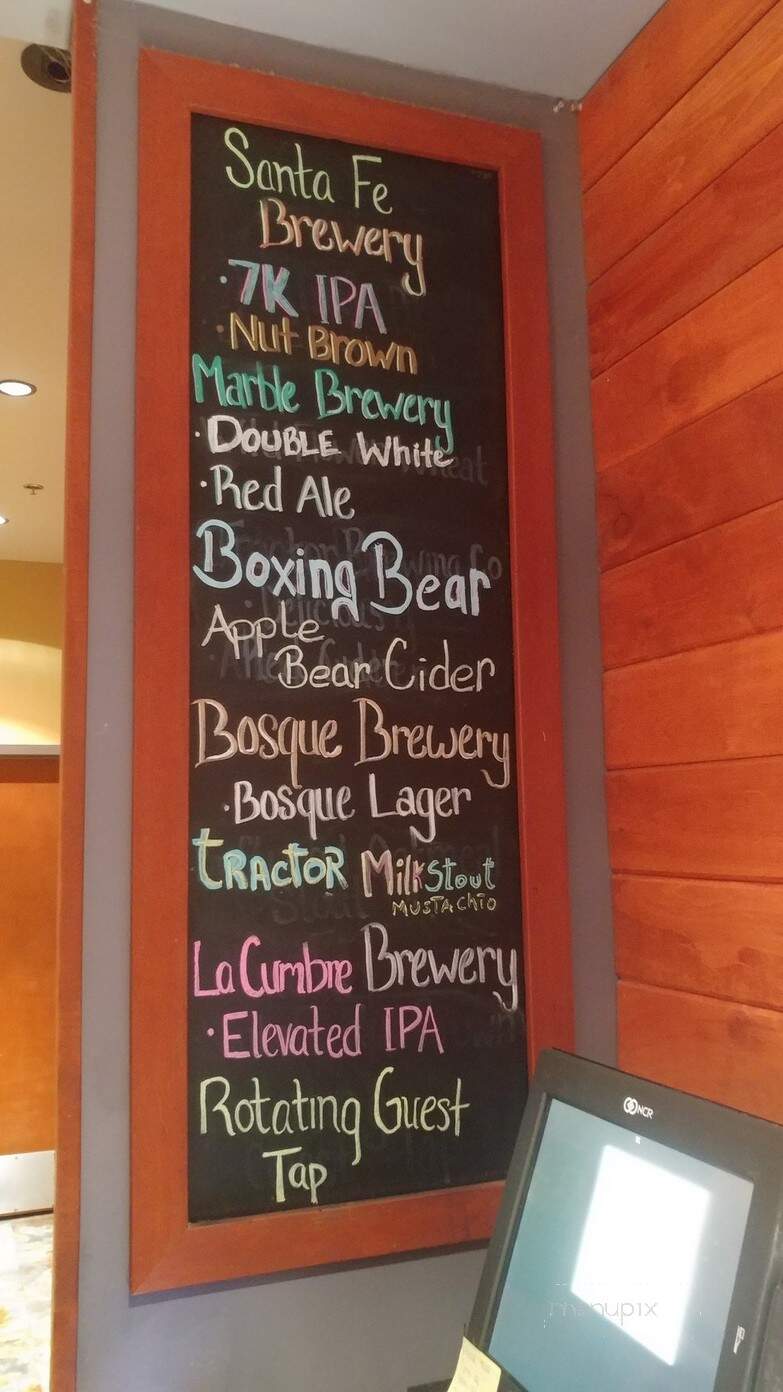 Santa Fe
Brewery
·7K IPA
·Nut Brown
Marble Brewery
·DOUBLE White
·Red Ale
Boxing Bear
Apple
Bear Cider
Bosque Brewery
·Bosque Lager
tRActoR Milk Stout
MUSTACHIO
La Cumbre Brewery
·Elevated IPA
Rotating Guest
Tap
NCR
menupix